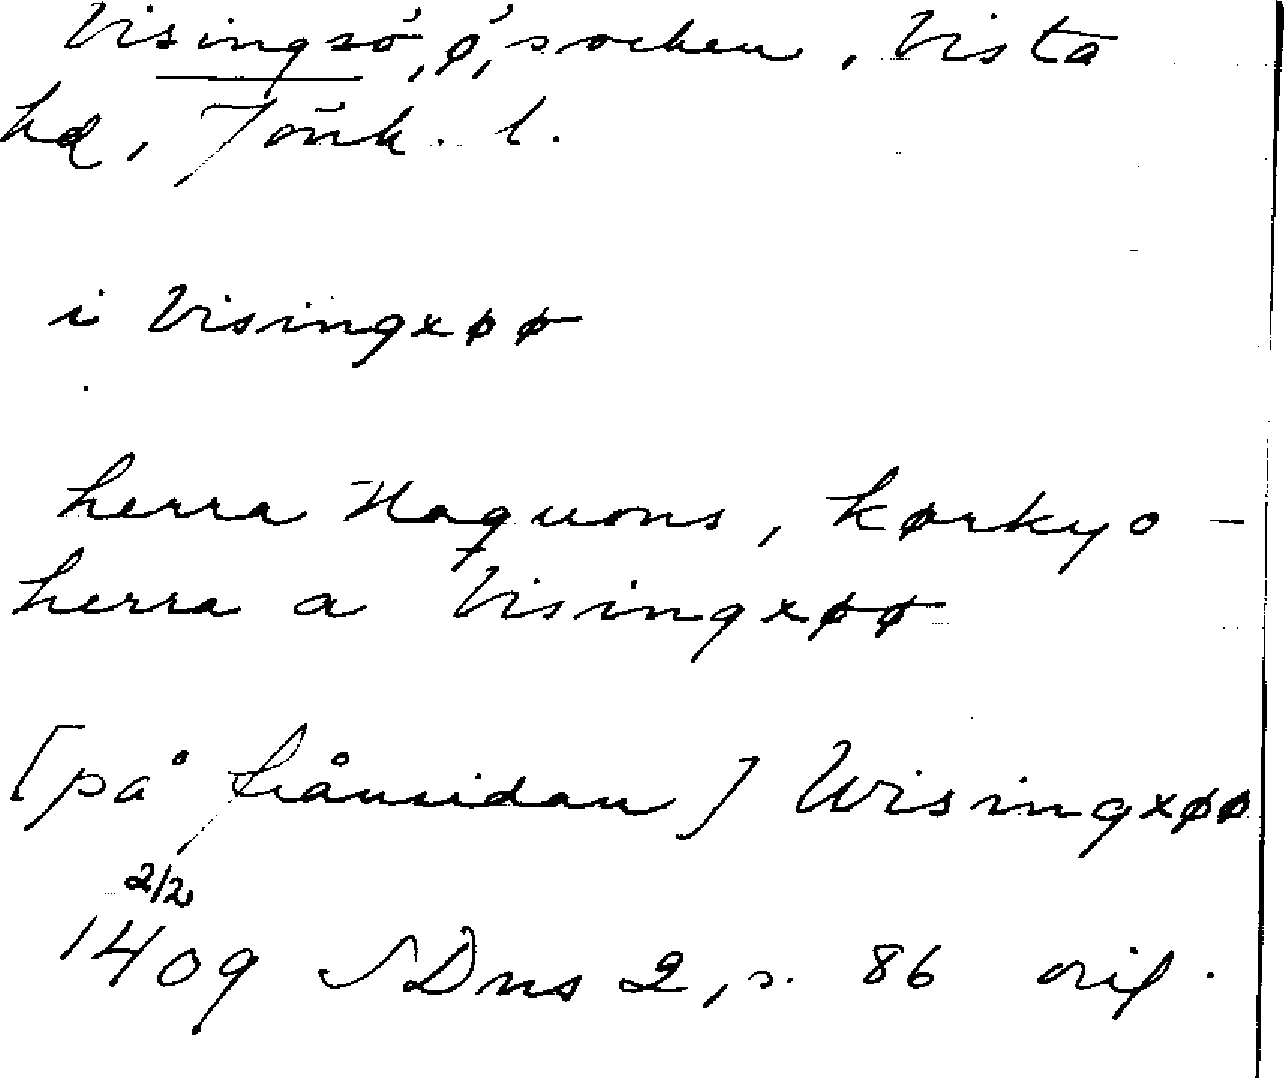 Visingsö, ö, socken, Vista
hd, Jönk. l.
i Visingxøø
herra Haquons, kørkyo-
herra a Visingxøø
[på frånsidan] Wisingxøø
2/2
1409 SDns 2, s. 86 orig.